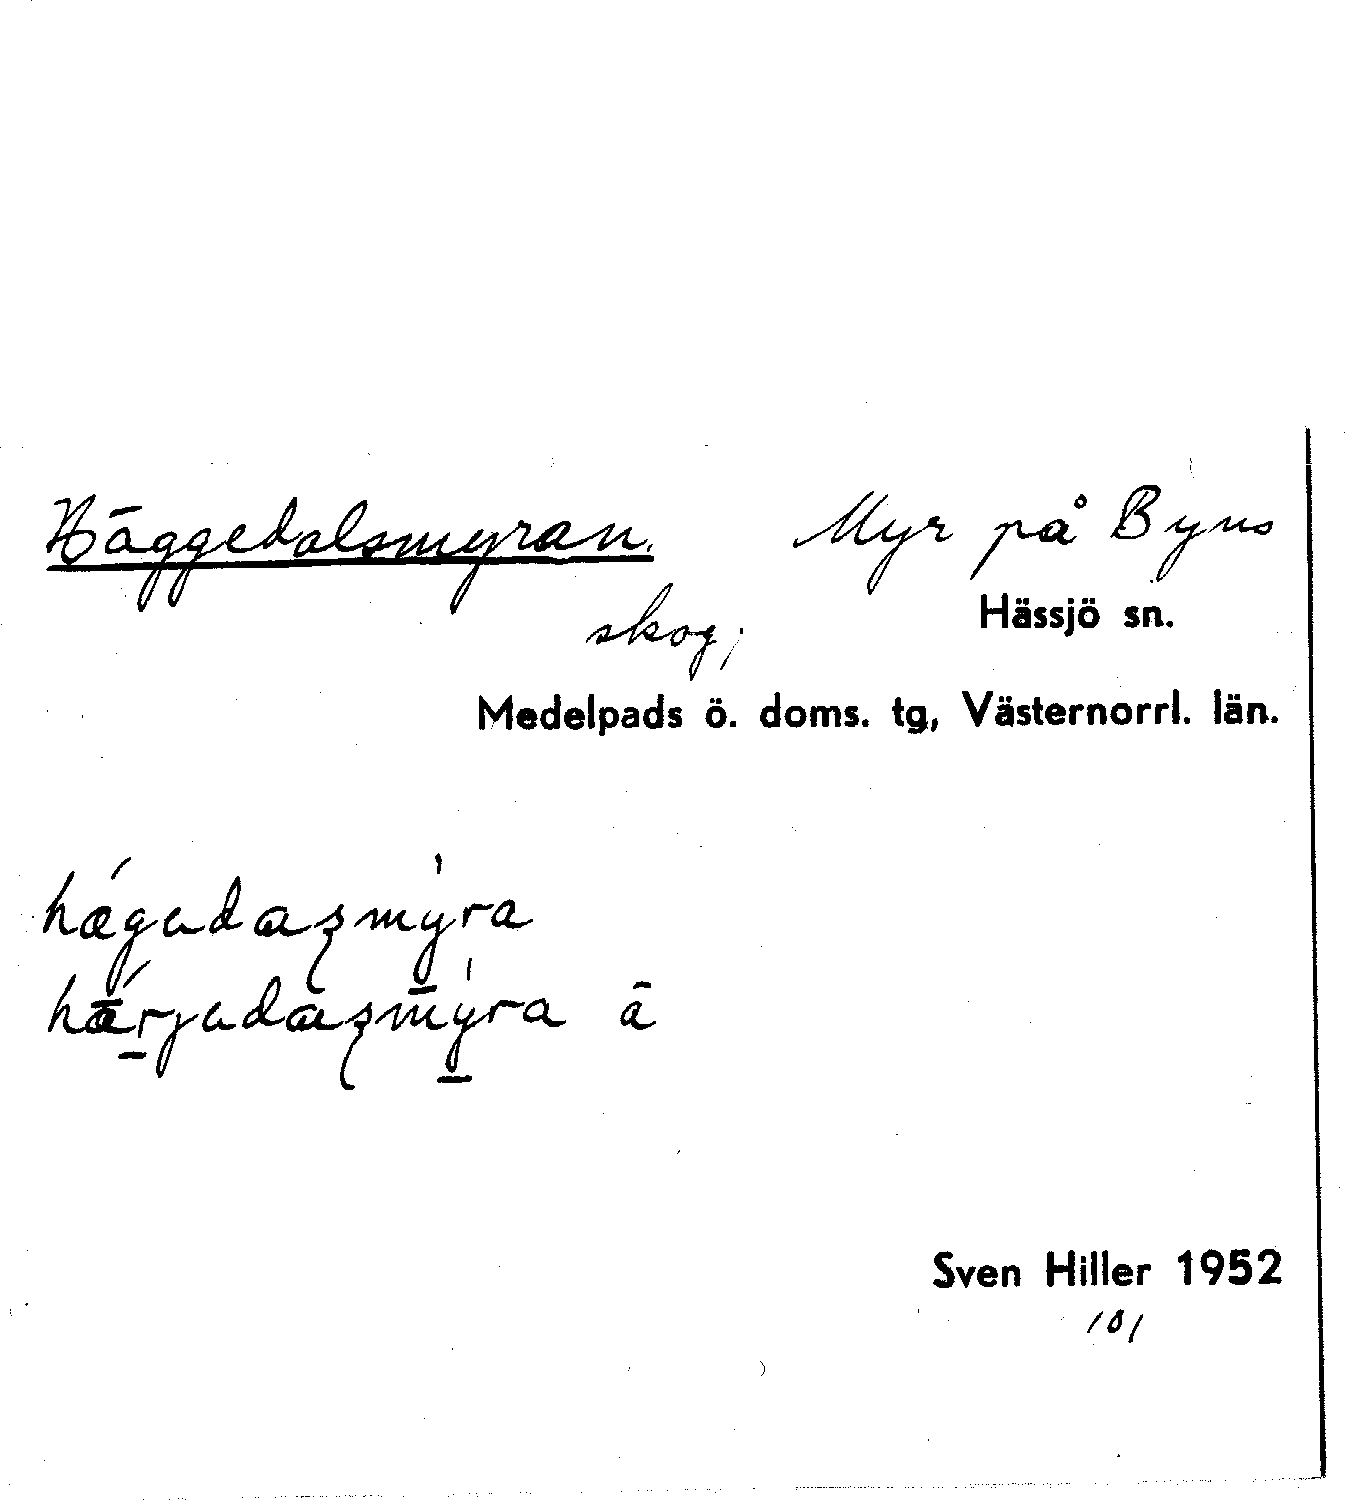 Häggedalsmyran. Myr på Byns
skog; Hässjö sn.
Medelpads ö. doms. tg, Västernorrl. län.
Sven Hiller 1952
101